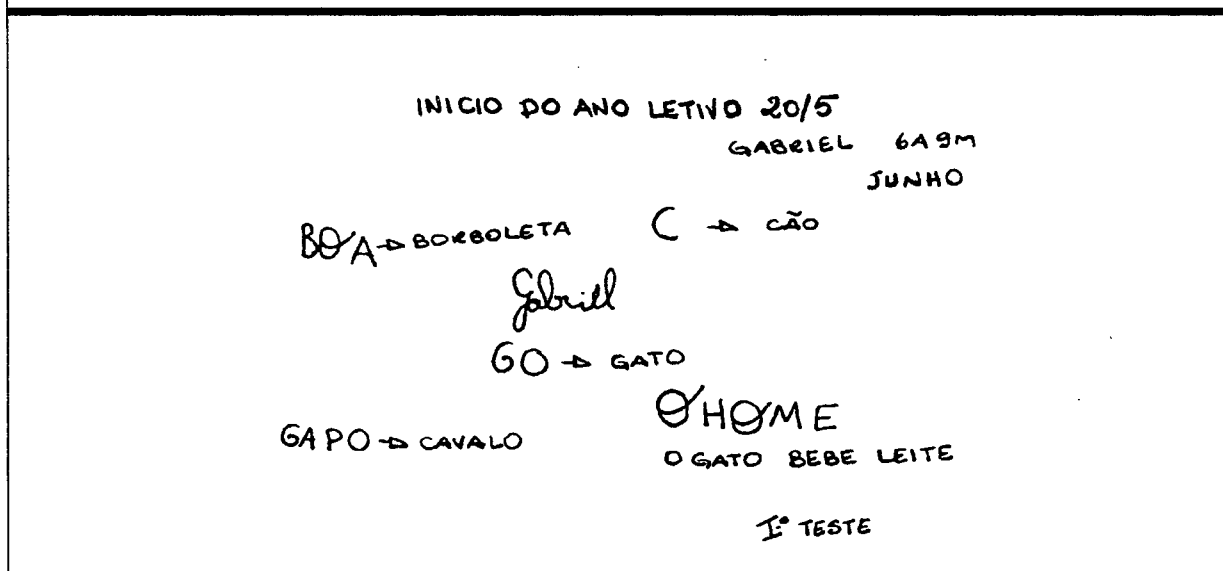 INICIO DO ANO LETIVO 20/5
GABRIEL 6A 9M
JUNHO
BOA → BORBOLETA C → CÃO
Gabriel
GO → GATO
OHOME
GAPO → CAVALO
O GATO BEBE LEITE
I.º TESTE